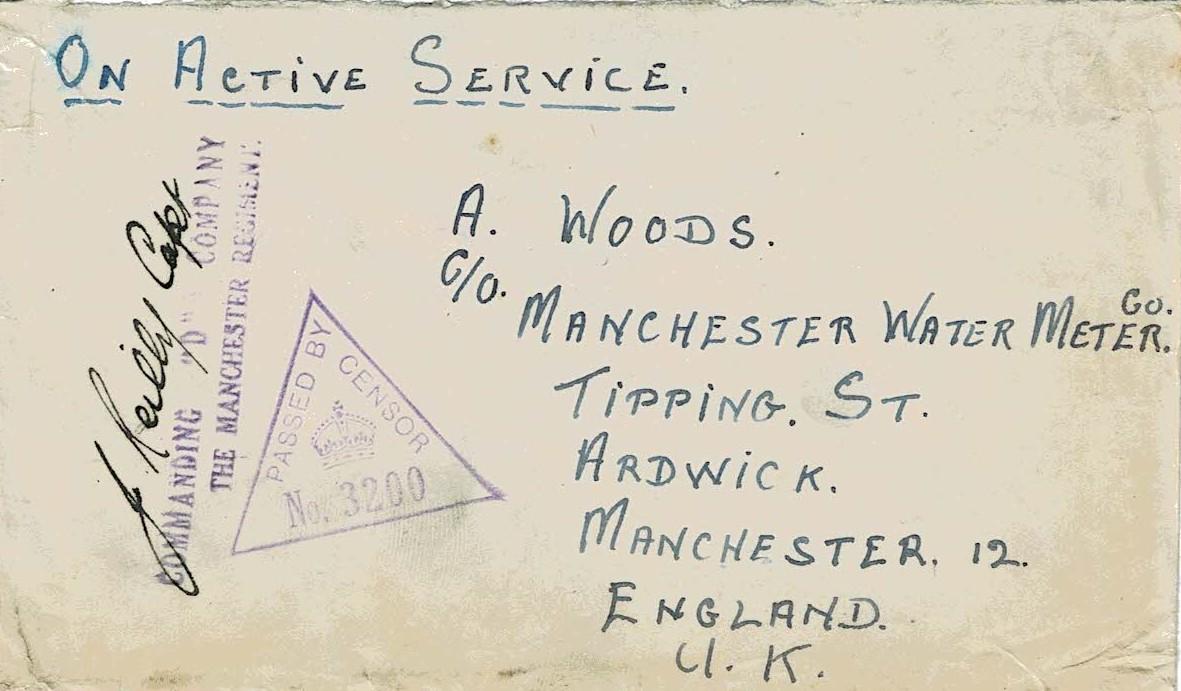 ON ACTIVE SERVICE.
A. WOODS.
C/O.
MANCHESTER WATER METER. CO.
TIPPING. ST.
ARDWICK.
MANCHESTER. 12.
ENGLAND.
U. K.
J. Reilly Capt
COMMANDING "D" COMPANY
THE MANCHESTER REGIMENT.
PASSED BY CENSOR
No. 3200